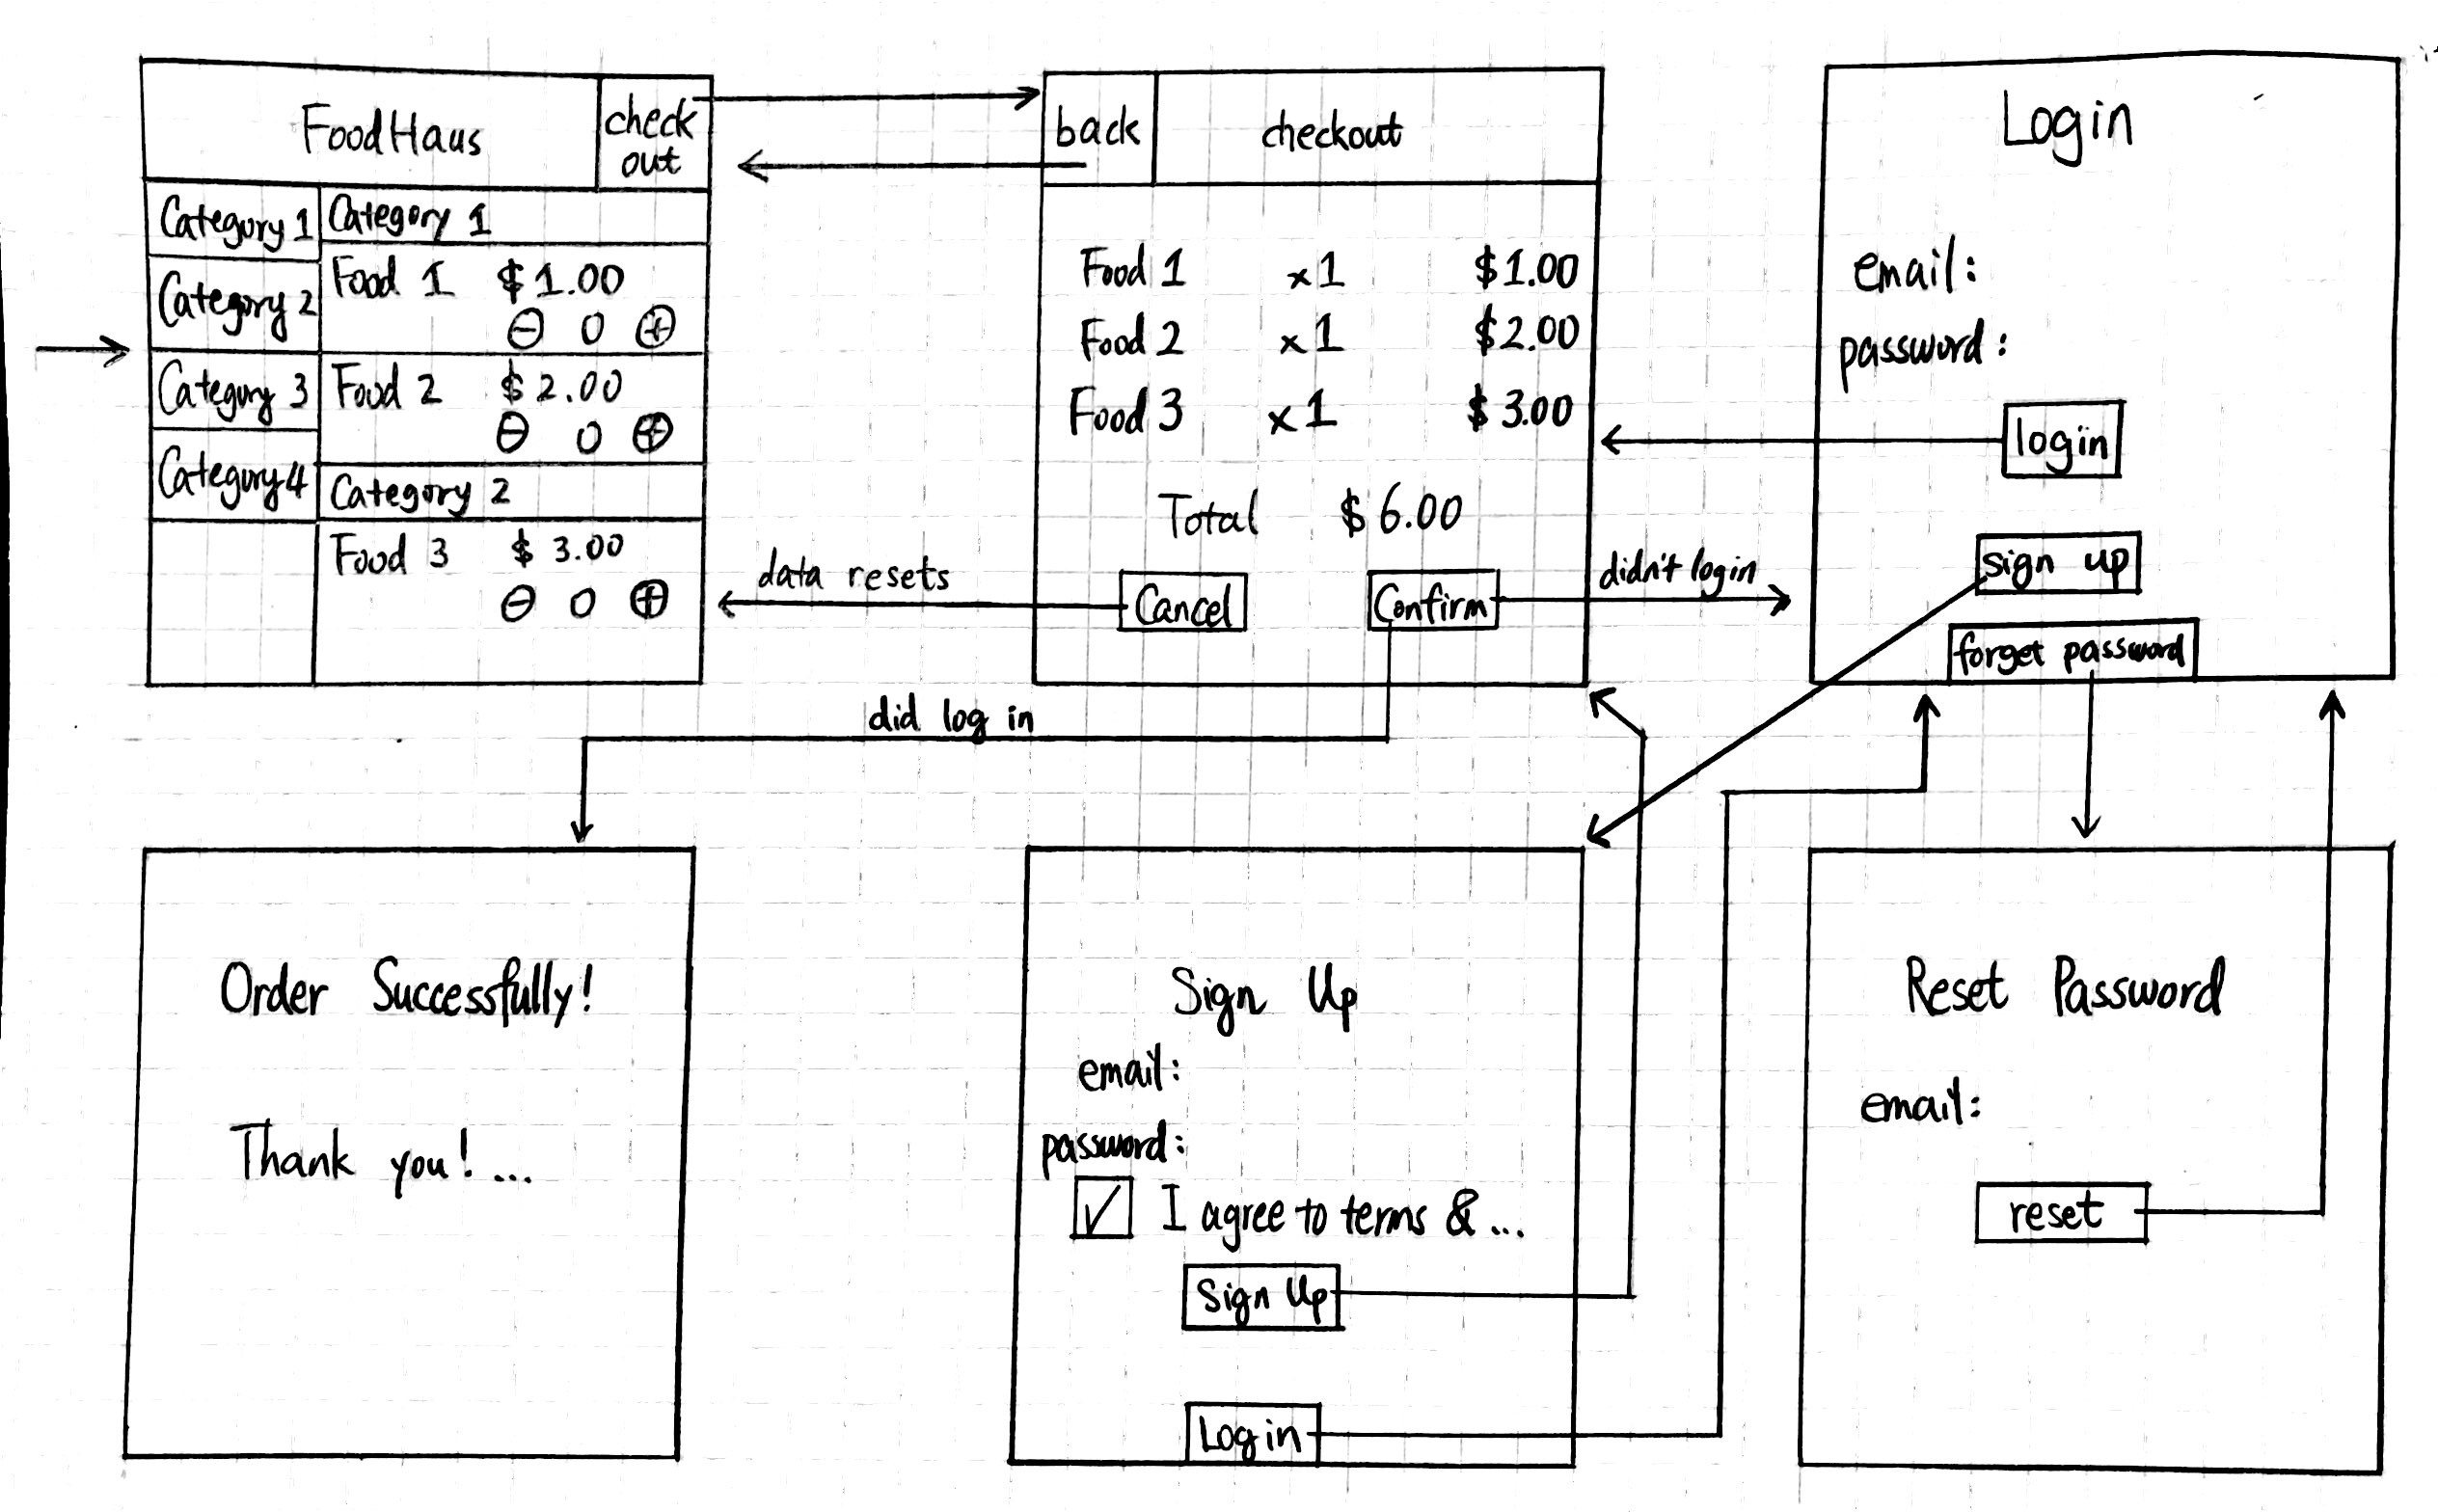 FoodHaus
check
out
Category 1
Category 2
Category 3
Category 4
Category 1
Food 1 $1.00
⊖ 0 ⊕
Food 2 $2.00
⊖ 0 ⊕
Category 2
Food 3 $3.00
⊖ 0 ⊕
back checkout
Food 1 x1 $1.00
Food 2 x1 $2.00
Food 3 x1 $3.00
Total $6.00
Cancel Confirm
data resets
didn't login
did log in
Login
email:
password:
login
sign up
forget password
Order Successfully!
Thank you!...
Sign Up
email:
password:
I agree to terms & ...
Sign Up
Log in
Reset Password
email:
reset